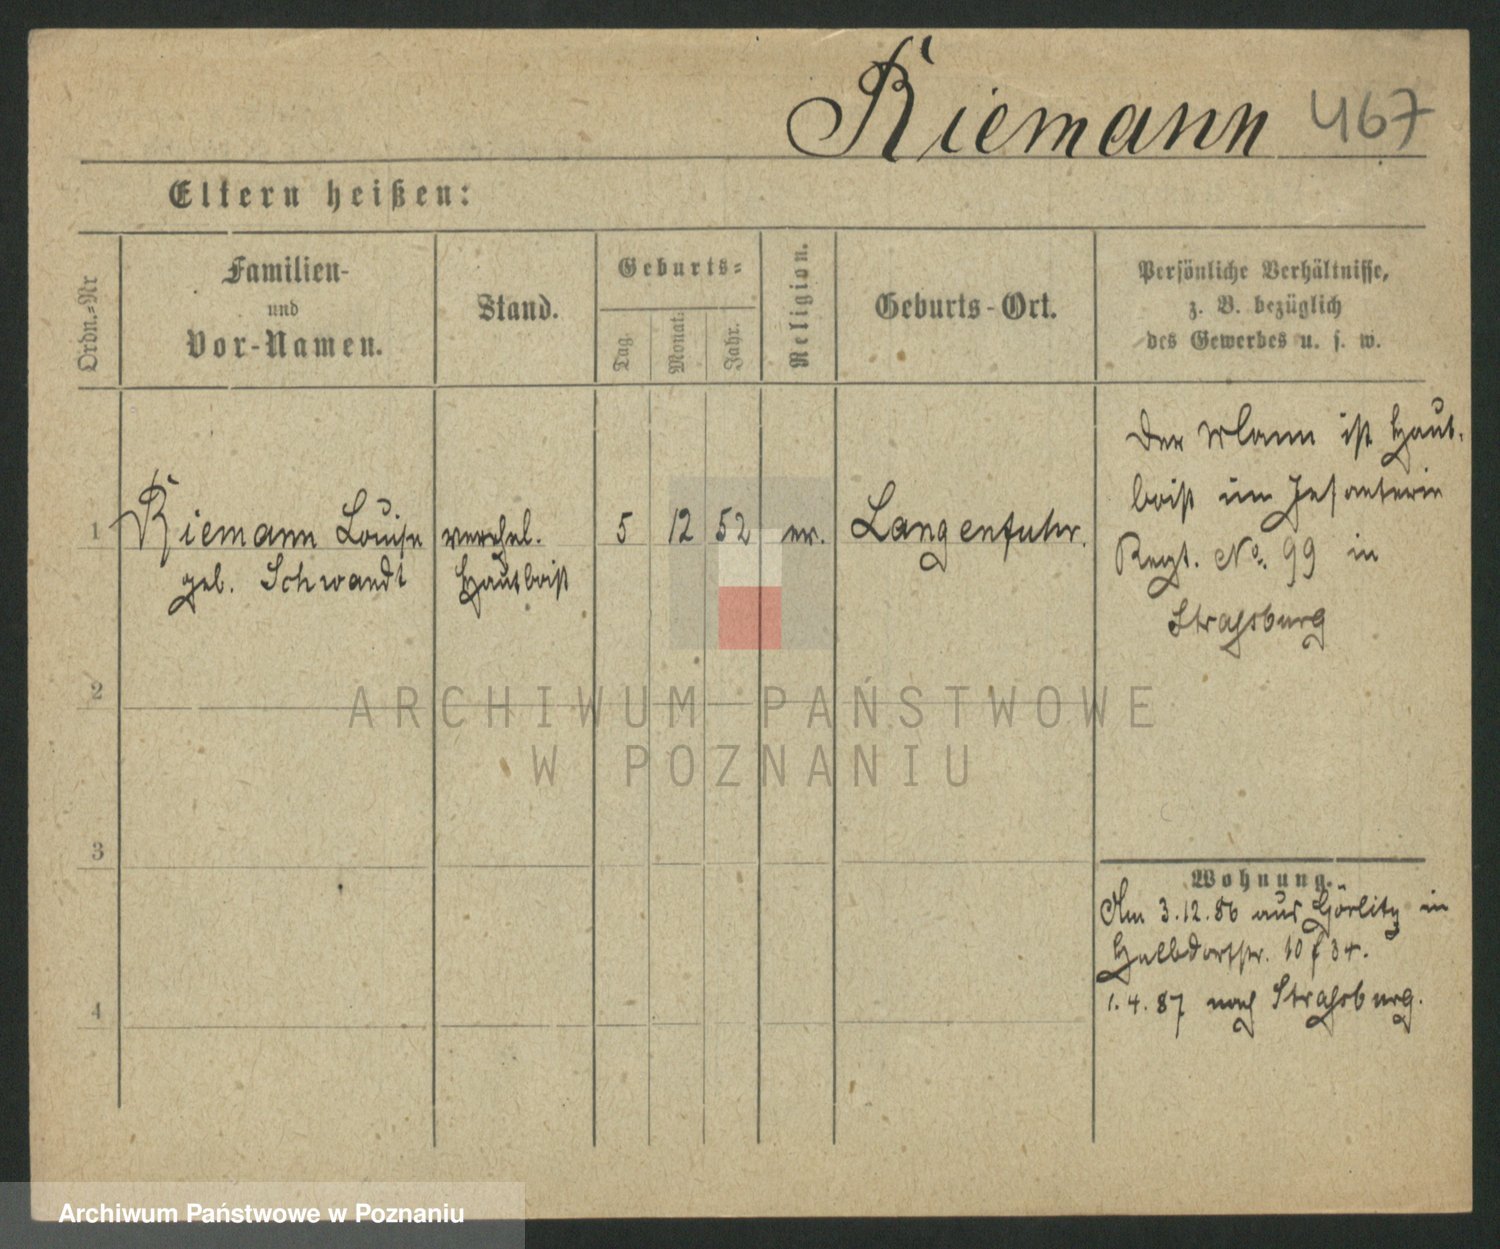 Riemann 467
Eltern heißen:
Ordn.-Nr
Familien-
und
Vor-Namen.
Stand.
Geburts-
Tag.
Monat.
Jahr.
Religion.
Geburts-Ort.
Persönliche Verhältnisse,
z. B. bezüglich
des Gewerbes u. s. w.
1 Riemann Louise verehel. 5 12 52 ev. Langenfuhr.
geb. Schwandt Hautboist
Der Mann ist Haut-
boist im Infanterie
Regt. No. 99 in
Strassburg
2
3
4
Wohnung.
Am 3.12.86 aus Görlitz in
Halbdorfstr. 10 34.
1.4.87 nach Strassburg.
ARCHIWUM PAŃSTWOWE
W POZNANIU
Archiwum Państwowe w Poznaniu